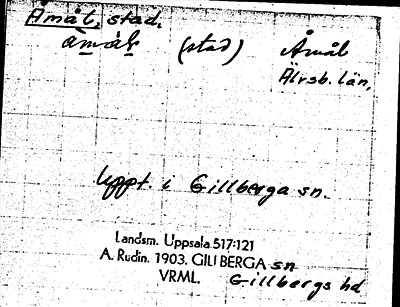 Åmål, stad.
åmål (stad) Åmål
Älvsb. län,
Uppt. i Gillberga sn.
Landsm. Uppsala 517:121
A. Rudin. 1903. GILLBERGA sn
VRML. Gillbergs hd